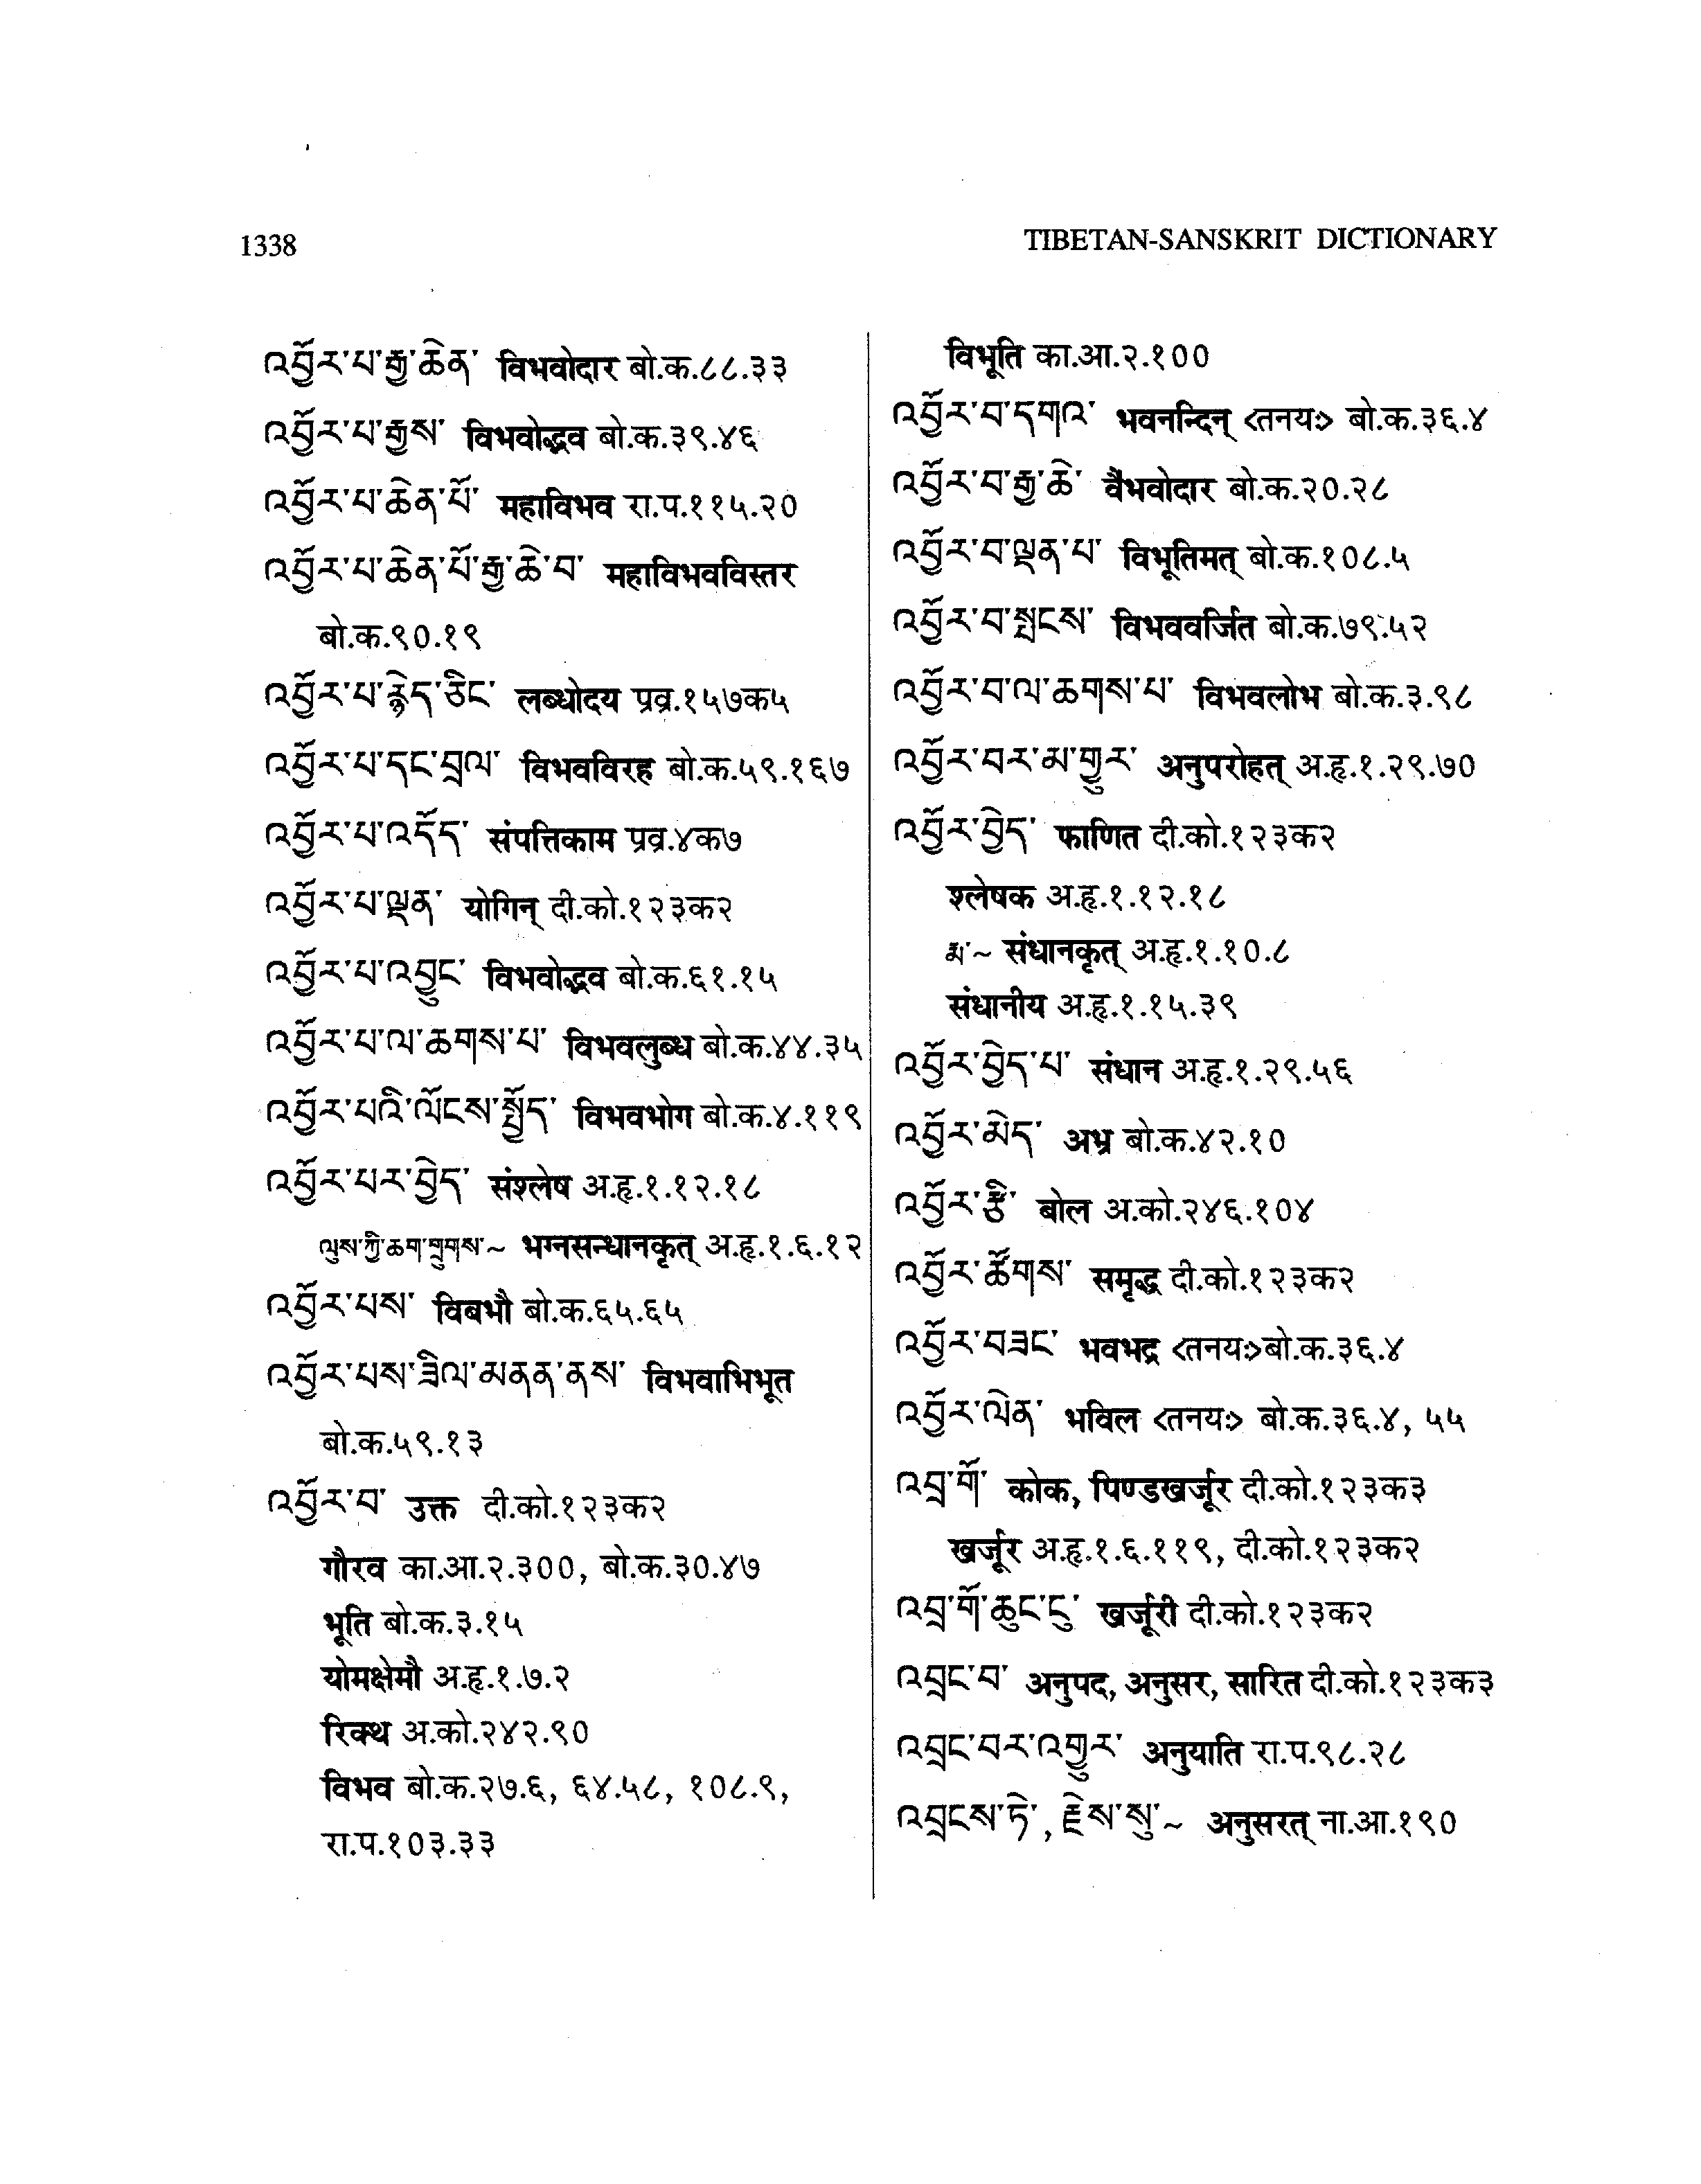 1338
TIBETAN-SANSKRIT DICTIONARY
འབྱོར་པ་རྒྱ་ཆེན་ विभवोदार बो.क.८८.३३
འབྱོར་པ་རྒྱས་ विभवोद्भव बो.क.३९.४६
འབྱོར་པ་ཆེན་པོ་ महाविभव रा.प.११५.२०
འབྱོར་པ་ཆེན་པོ་རྒྱ་ཆེ་བ་ महाविभवविस्तर
बो.क.९०.१९
འབྱོར་པ་རྙེད་ཅིང་ लब्धोदय प्रव्र.१५७क५
འབྱོར་པ་དང་བྲལ་ विभवविरह बो.क.५९.१६७
འབྱོར་པ་འདོད་ संपत्तिकाम प्रव्र.४क७
འབྱོར་པ་ལྡན་ योगिन् दी.को.१२३क२
འབྱོར་པ་འབྱུང་ विभवोद्भव बो.क.६१.१५
འབྱོར་པ་ལ་ཆགས་པ་ विभवलुब्ध बो.क.४४.३५
འབྱོར་པའི་ལོངས་སྤྱོད་ विभवभोग बो.क.४.११९
འབྱོར་པར་བྱེད་ संश्लेष अ.हृ.१.१२.१८
ལུས་ཀྱི་ཆག་གྲུགས་~ भग्नसन्धानकृत् अ.हृ.१.६.१२
འབྱོར་པས་ विबभौ बो.क.६५.६५
འབྱོར་པས་ཟིལ་མནན་ནས་ विभवाभिभूत
बो.क.५९.१३
འབྱོར་བ་ उक्त दी.को.१२३क२
गौरव का.आ.२.३००, बो.क.३०.४७
भूति बो.क.३.१५
योमक्षेमौ अ.हृ.१.७.२
रिक्थ अ.को.२४२.९०
विभव बो.क.२७.६, ६४.५८, १०८.९,
रा.प.१०३.३३
विभूति का.आ.२.१००
འབྱོར་བ་དགའ་ भवनन्दिन् <तनयः> बो.क.३६.४
འབྱོར་བ་རྒྱ་ཆེ་ वैभवोदार बो.क.२०.२८
འབྱོར་བ་ལྡན་པ་ विभूतिमत् बो.क.१०८.५
འབྱོར་བ་སྤངས་ विभववर्जित बो.क.७९.५२
འབྱོར་བ་ལ་ཆགས་པ་ विभवलोभ बो.क.३.९८
འབྱོར་བར་མ་གྱུར་ अनुपरोहत् अ.हृ.१.२९.७०
འབྱོར་བྱེད་ फाणित दी.को.१२३क२
श्लेषक अ.हृ.१.१२.१८
རྨ་~ संधानकृत् अ.हृ.१.१०.८
संधानीय अ.हृ.१.१५.३९
འབྱོར་བྱེད་པ་ संधान अ.हृ.१.२९.५६
འབྱོར་མེད་ अभ्र बो.क.४२.१०
འབྱོར་རྩི་ बोल अ.को.२४६.१०४
འབྱོར་ཚོགས་ समृद्ध दी.को.१२३क२
འབྱོར་བཟང་ भवभद्र <तनयः>बो.क.३६.४
འབྱོར་ལེན་ भविल <तनयः> बो.क.३६.४, ५५
འབྲ་གོ་ कोक, पिण्डखर्जूर दी.को.१२३क३
खर्जूर अ.हृ.१.६.११९, दी.को.१२३क२
འབྲ་གོ་ཆུང་ངུ་ खर्जूरी दी.को.१२३क२
འབྲང་བ་ अनुपद, अनुसर, सारित दी.को.१२३क३
འབྲང་བར་འགྱུར་ अनुयाति रा.प.९८.२८
འབྲངས་ཏེ་, རྗེས་སུ་~ अनुसरत् ना.आ.१९०